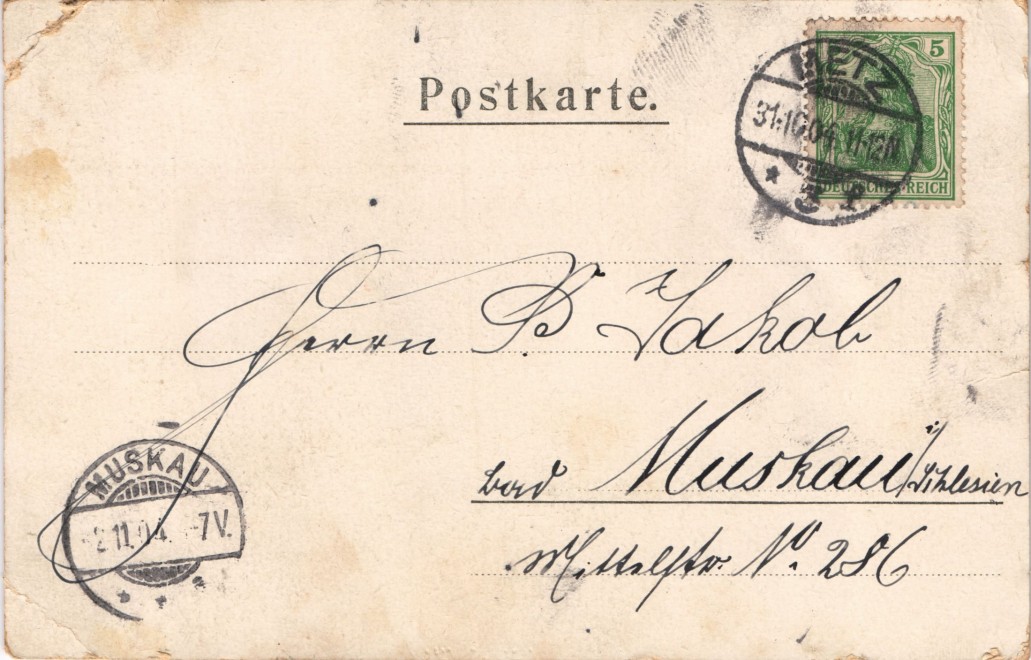 Postkarte.
5
DEUTSCHES REICH
METZ
31.10.04. 11-12N
Herrn P Jakob
Bad Muskau i/Schlesien
Mittelstr. No. 286
MUSKAU
2.11.04. 7V.